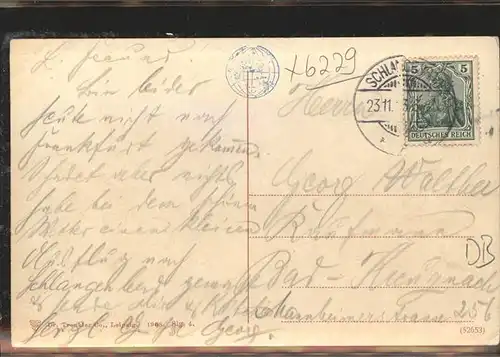 L. Freund.
Bin leider
heute nicht nach
Frankfurt gekommen.
Schadet aber nichts
habe bei dem schönen
Wetter einen kleinen
Ausflug nach
Schlangenbad gemacht
Georg.
x6229
SCHLAN
23.11.
5 5
DEUTSCHES REICH
Herrn
Georg Walther
Kaufmann
Bad-Kreuznach
Mannheimerstrasse 256
DB
Dr. Trenkler Co., Leipzig. 1905.
(52653)